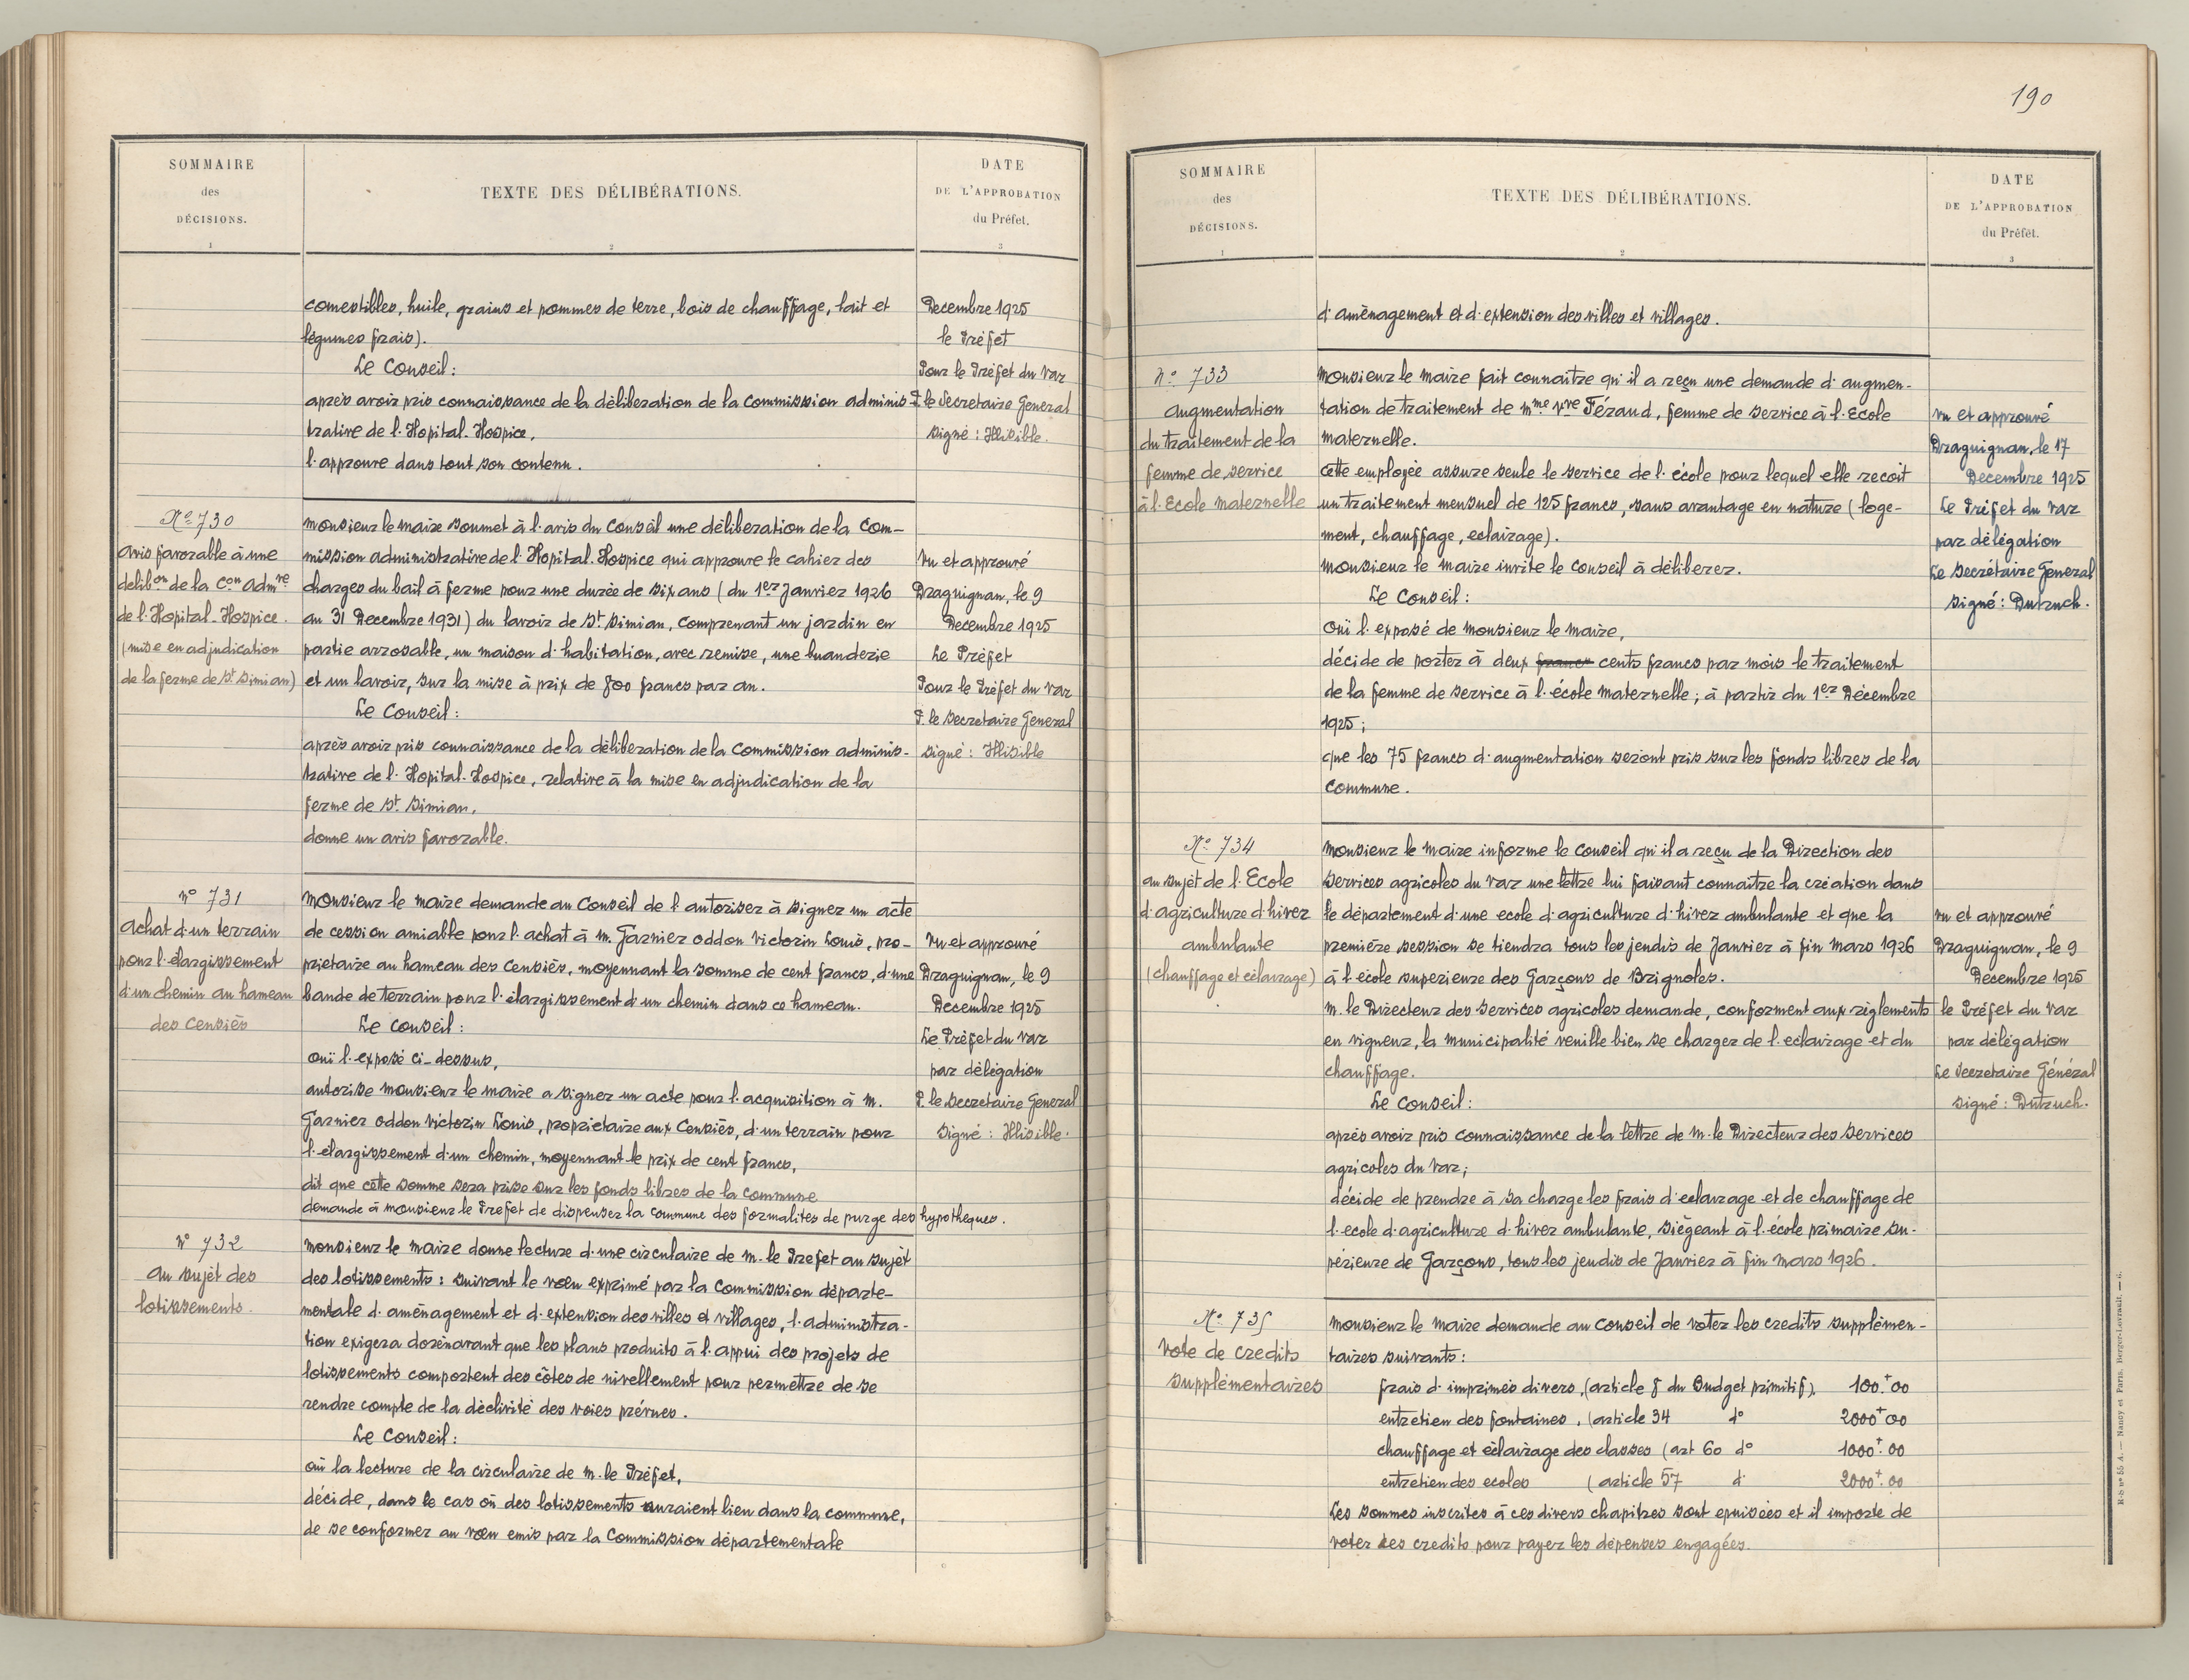 SOMMAIRE
des
DÉCISIONS.
1
TEXTE DES DÉLIBÉRATIONS.
2
DATE
DE L'APPROBATION
du Préfet.
3
comestibles, huile, grains et pommes de terre, bois de chauffage, lait et
légumes frais).
Le Conseil:
après avoir pris connaissance de la délibération de la Commission adminis-
trative de l'Hopital-Hospice,
l'approuve dans tout son contenu.
Decembre 1925
le Préfet
Pour le Préfet du Var
P. le Secretaire General
Signé: Illisible.
No 730
avis favorable à une
delibon de la Con Admve
de l'Hopital-Hospice.
(mise en adjudication
de la ferme de St Simian)
Monsieur le Maire soumet à l'avis du Conseil une délibération de la Com-
mission administrative de l'Hopital-Hospice qui approuve le cahier des
charges du bail à ferme pour une durée de six ans (du 1er Janvier 1926
au 31 Decembre 1931) du lavoir de St Simian, comprenant un jardin en
partie arrosable, un maison d'habitation, avec remise, une buanderie
et un lavoir, sur la mise à prix de 800 francs par an.
Le Conseil:
après avoir pris connaissance de la délibération de la Commission adminis-
trative de l'Hopital-Hospice, relative à la mise en adjudication de la
ferme de St Simian,
donne un avis favorable.
Vu et approuvé
Draguignan, le 9
Decembre 1925
Le Préfet
Pour le Préfet du Var
P. le Secretaire General
Signé: Illisible
No 731
Achat d'un terrain
pour l'élargissement
d'un chemin au hameau
des Censiès
Monsieur le Maire demande au Conseil de l'autoriser à signer un acte
de cession amiable pour l'achat à M. Garnier Oddon Victorin Louis, pro-
priétaire au hameau des Censiès, moyennant la somme de cent francs, d'une
bande de terrain pour l'élargissement d'un chemin dans ce hameau.
Le Conseil:
ouï l'exposé ci-dessus,
autorise Monsieur le Maire a signer un acte pour l'acquisition à M.
Garnier Oddon Victorin Louis, propriétaire aux Censiès, d'un terrain pour
l'élargissement d'un chemin, moyennant le prix de cent francs,
dit que cette somme sera prise sur les fonds libres de la commune
demande à Monsieur le Prefet de dispenser la commune des formalités de purge des hypothèques.
Vu et approuvé
Draguignan, le 9
Decembre 1925
Le Préfet du Var
par délégation
P. le Secretaire General
Signé: Illisible.
No 732
Au sujet des
lotissements.
Monsieur le Maire donne lecture d'une circulaire de M. le Prefet au sujet
des lotissements: suivant le vœu exprimé par la Commission départe-
mentale d'aménagement et d'extension des villes et villages, l'administra-
tion exigera dorénavant que les plans produits à l'appui des projets de
lotissements comportent des côtes de nivellement pour permettre de se
rendre compte de la déclivité des voies prévues.
Le Conseil:
ouï la lecture de la circulaire de M. le Préfet,
décide, dans le cas où des lotissements auraient lieu dans la commune,
de se conformer au vœu emis par la Commission départementale
190
SOMMAIRE
des
DÉCISIONS.
1
TEXTE DES DÉLIBÉRATIONS.
2
DATE
DE L'APPROBATION
du Préfet.
3
d'aménagement et d'extension des villes et villages.
No 733
Augmentation
du traitement de la
femme de service
à l'Ecole maternelle
Monsieur le Maire fait connaitre qu'il a reçu une demande d'augmen-
tation de traitement de Mme Vve Féraud, femme de service à l'Ecole
maternelle.
Cette employée assure seule le service de l'école pour lequel elle recoit
un traitement mensuel de 125 francs, sans avantage en nature (loge-
ment, chauffage, eclairage).
Monsieur le Maire invite le Conseil à déliberer.
Le Conseil:
Ouï l'exposé de Monsieur le Maire,
décide de porter à deux francs cents francs par mois le traitement
de la femme de service à l'école maternelle; à partir du 1er Décembre
1925;
que les 75 francs d'augmentation seront pris sur les fonds libres de la
Commune.
Vu et approuvé
Draguignan, le 17
Decembre 1925
Le Préfet du Var
par délégation
Le Secrétaire General
Signé: Dutruch.
No 734
au sujet de l'Ecole
d'agriculture d'hiver
ambulante
(chauffage et eclairage)
Monsieur le Maire informe le Conseil qu'il a reçu de la Direction des
Services agricoles du Var une lettre lui faisant connaitre la création dans
le département d'une ecole d'agriculture d'hiver ambulante et que la
première session se tiendra tous les jeudis de Janvier à fin Mars 1926
à l'école superieure des Garçons de Brignoles.
M. le Directeur des Services agricoles demande, conforment aux règlements
en vigueur, la municipalité veuille bien se charger de l'eclairage et du
chauffage.
Le Conseil:
après avoir pris connaissance de la lettre de M. le Directeur des Services
agricoles du Var;
décide de prendre à sa charge les frais d'eclairage et de chauffage de
l'ecole d'agriculture d'hiver ambulante, siègeant à l'école primaire su-
périeure de Garçons, tous les jeudis de Janvier à fin Mars 1926.
Vu et approuvé
Draguignan, le 9
Decembre 1925
le Préfet du Var
par délégation
Le Secretaire Général
Signé: Dutruch.
No 735
Vote de credits
supplémentaires
Monsieur le Maire demande au Conseil de voter les credits supplémen-
taires suivants:
frais d'imprimés divers, (article 8 du Budget primitif), 100f.00
entretien des fontaines, (article 34 do 2000f00
chauffage et éclairage des classes (art 60 do 1000f.00
entretien des ecoles (article 57 d. 2000f.00
Les sommes inscrites à ces divers chapitres sont epuisées et il importe de
voter ces credits pour payer les dépenses engagées.
R-b no 55 A. — Nancy et Paris, Berger-Levrault. — 6.